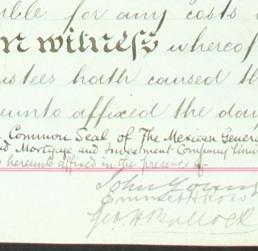 ible for any costs
In witness whereof
ustees hath caused th
eunto affixed the day
Common Seal of The Mexican Gener
d Mortgage and Investment Company Limi
s hereunto affixed in the presence of
John Young